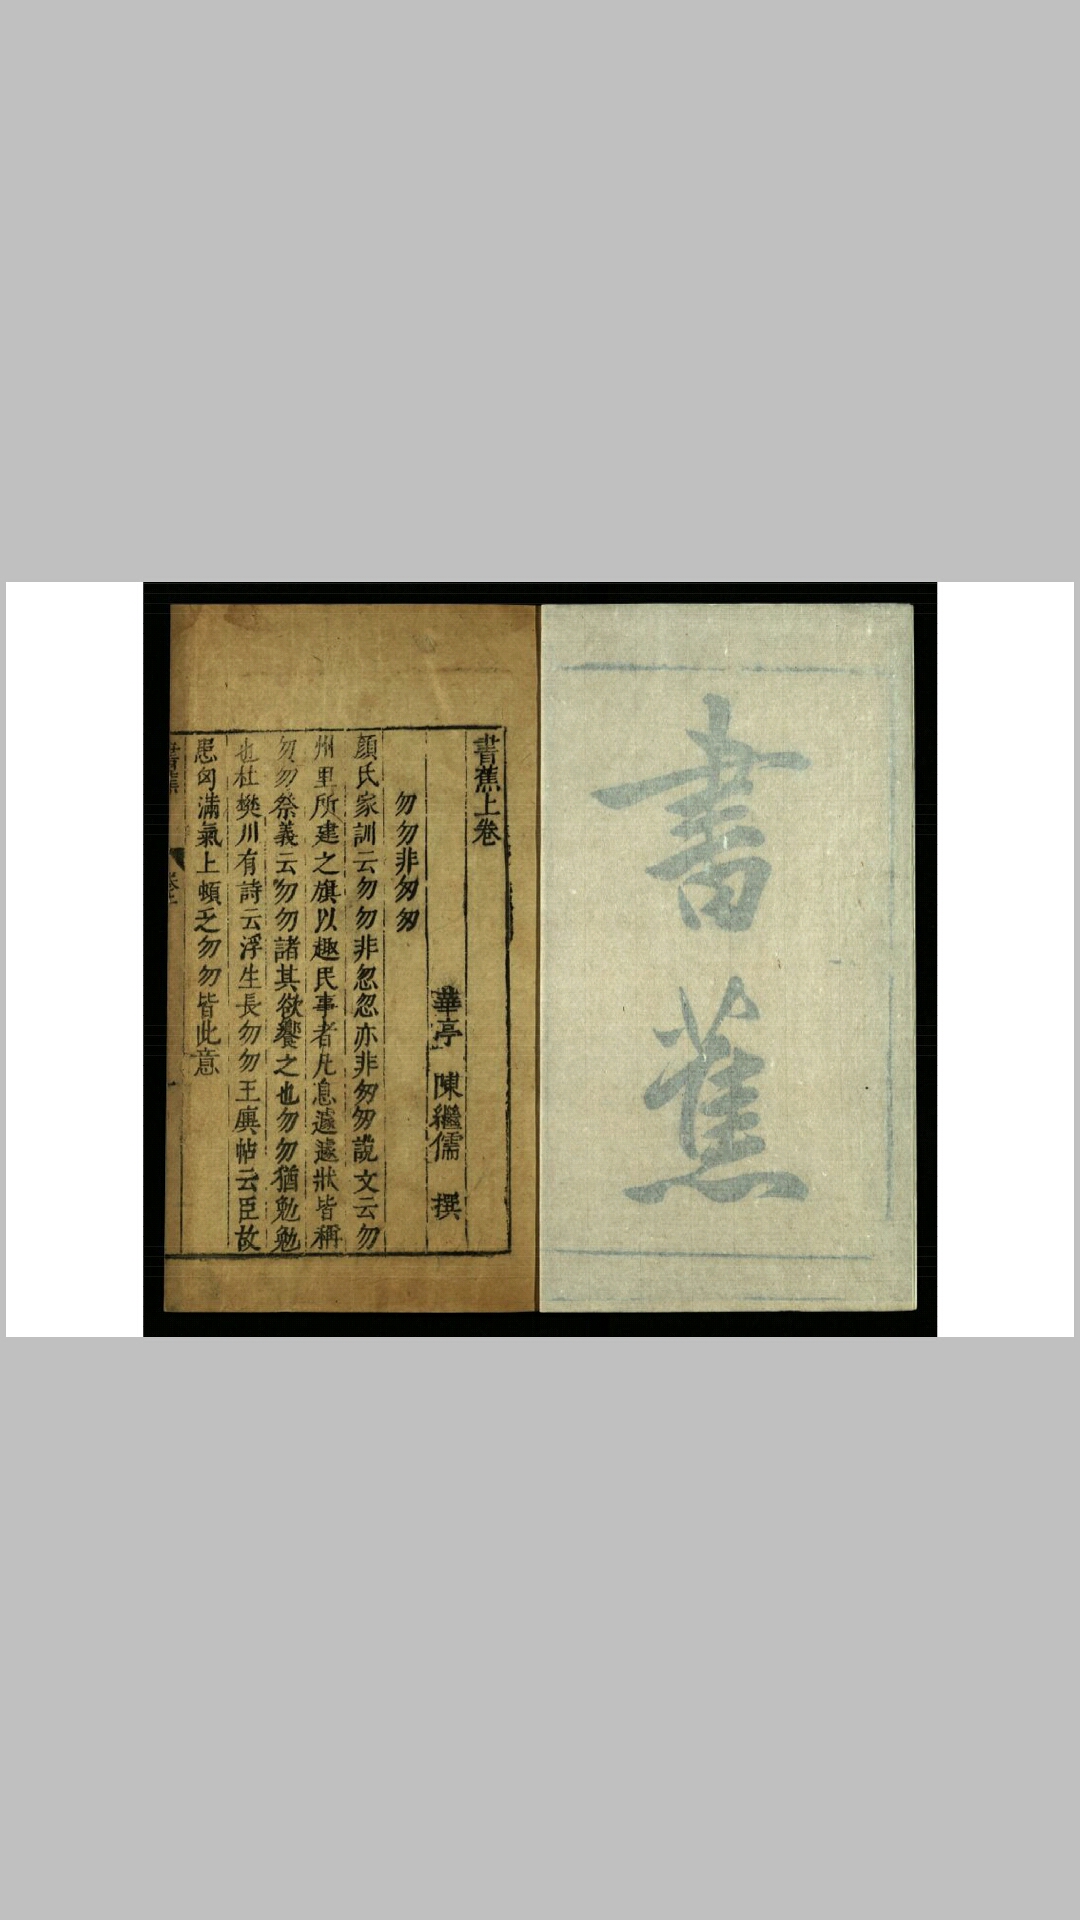 書蕉
書蕉上卷
華亭 陳繼儒 撰
勿勿非匆匆
顔氏家訓云勿勿非忽忽亦非匆匆說文云勿
州里所建之旗以趣民事者凡息遽遽狀皆稱
勿勿祭義云勿勿諸其欲饗之也勿勿猶勉勉
也杜樊川有詩云浮生長勿勿王廙帖云臣故
患匈滿氣上頓乏勿勿皆此意
書蕉